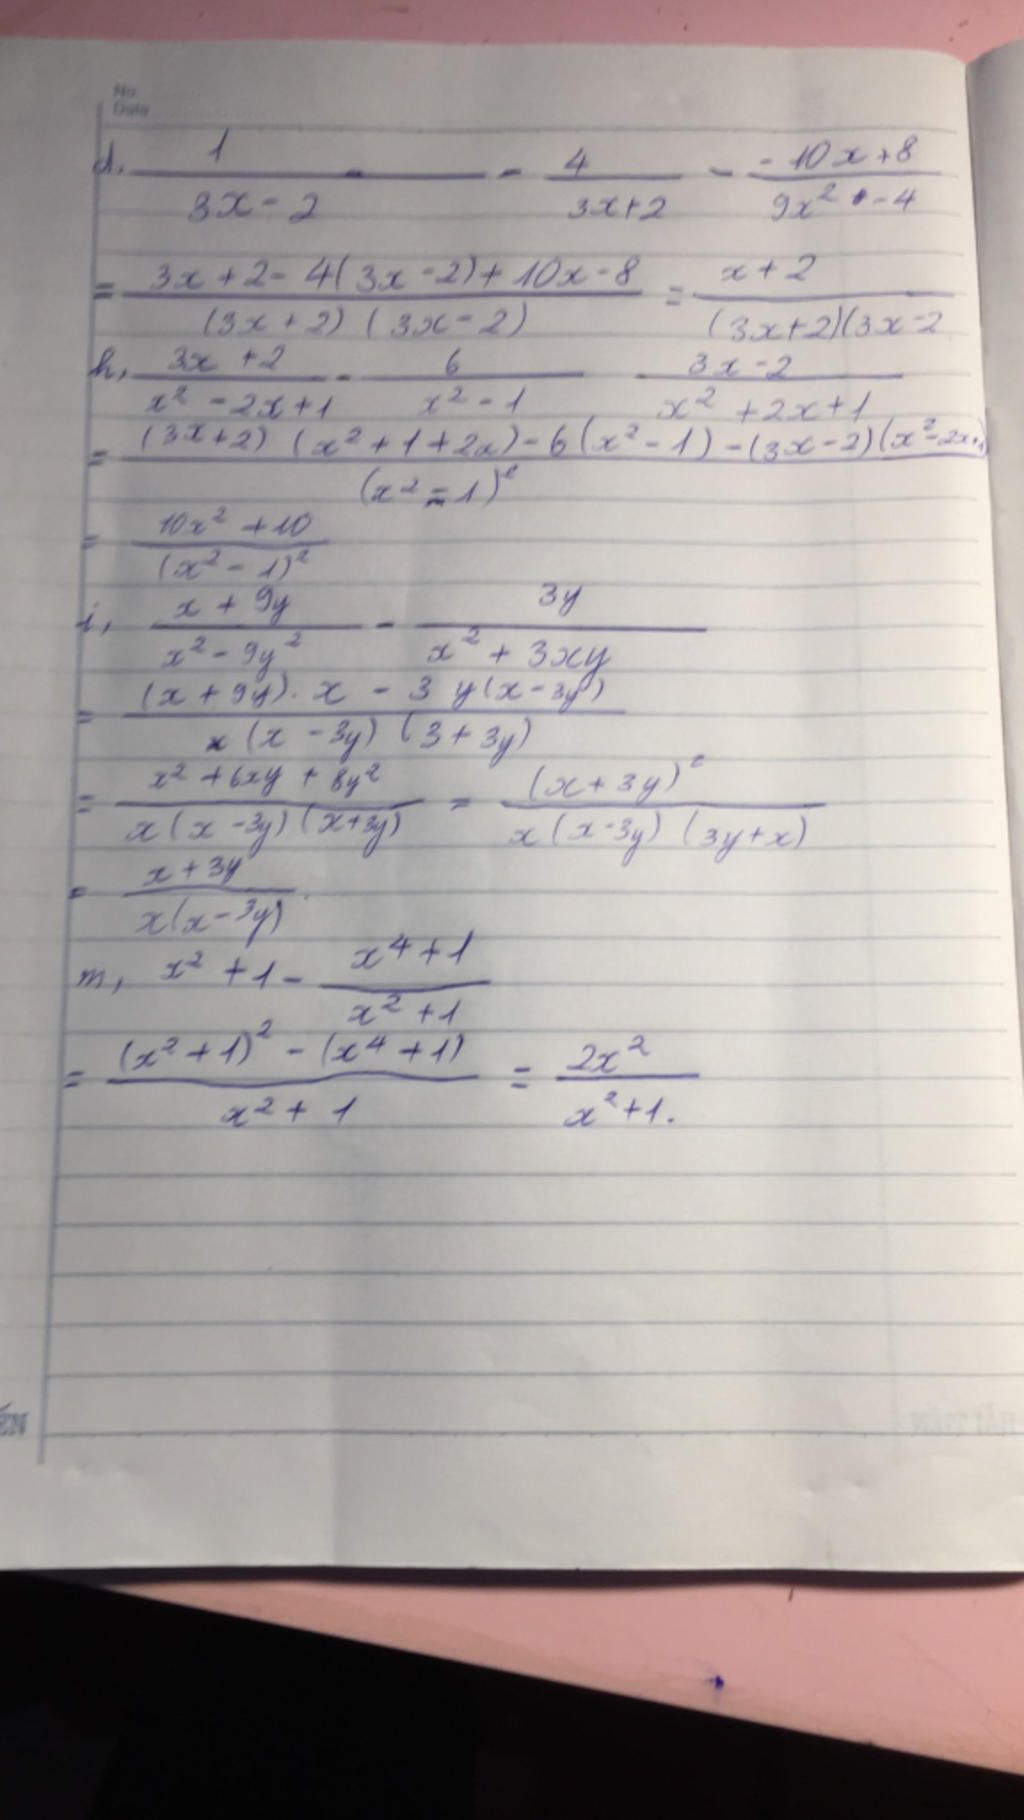 No.
Date
d, 1/(3x - 2) - 4/(3x + 2) - (-10x + 8)/(9x² - 4)
= (3x + 2 - 4(3x - 2) + 10x - 8)/((3x + 2)(3x - 2)) = (x + 2)/((3x + 2)(3x - 2
h, (3x + 2)/(x² - 2x + 1) - 6/(x² - 1) - (3x - 2)/(x² + 2x + 1)
= ((3x + 2)(x² + 1 + 2x) - 6(x² - 1) - (3x - 2)(x² - 2x + 1))/(x² - 1)²
= (10x² + 10)/(x² - 1)²
i, (x + 9y)/(x² - 9y²) - 3y/(x² + 3xy)
= ((x + 9y) . x - 3y(x - 3y))/(x(x - 3y)(3 + 3y))
= (x² + 6xy + 8y²)/(x(x - 3y)(x + 3y)) = (x + 3y)²/(x(x - 3y)(3y + x))
= (x + 3y)/(x(x - 3y)).
m, x² + 1 - (x⁴ + 1)/(x² + 1)
= ((x² + 1)² - (x⁴ + 1))/(x² + 1) = 2x²/(x² + 1).